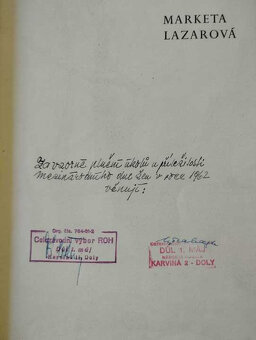 MARKETA
LAZAROVÁ
Za vzorné plnění úkolů u příležitosti
Mezinárodního dne žen v roce 1962
věnují:
Org. čís. 784-01-2
Celozávodní výbor ROH
Důl 1. máj
Karviná 2, Doly
DŮL 1. MÁJ
KARVINÁ 2 - DOLY